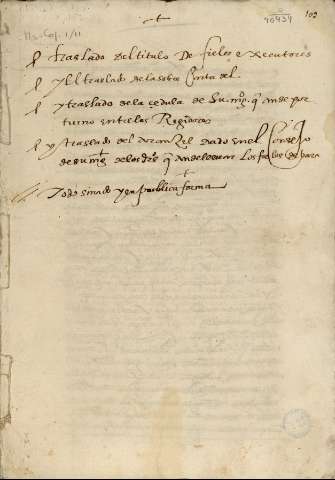 Ms. Caj. 1/11
103
40939
traslado del titulo De fieles executores
y El traslado de la sobre Carta del
y traslado de la cedula de Su mg. q ande por
turno entre los Regidores
y traslado del aranzel dado en el Consejo
de su mg. de los drs. q an de llevar Los fieles
Todo sinado y en publica forma